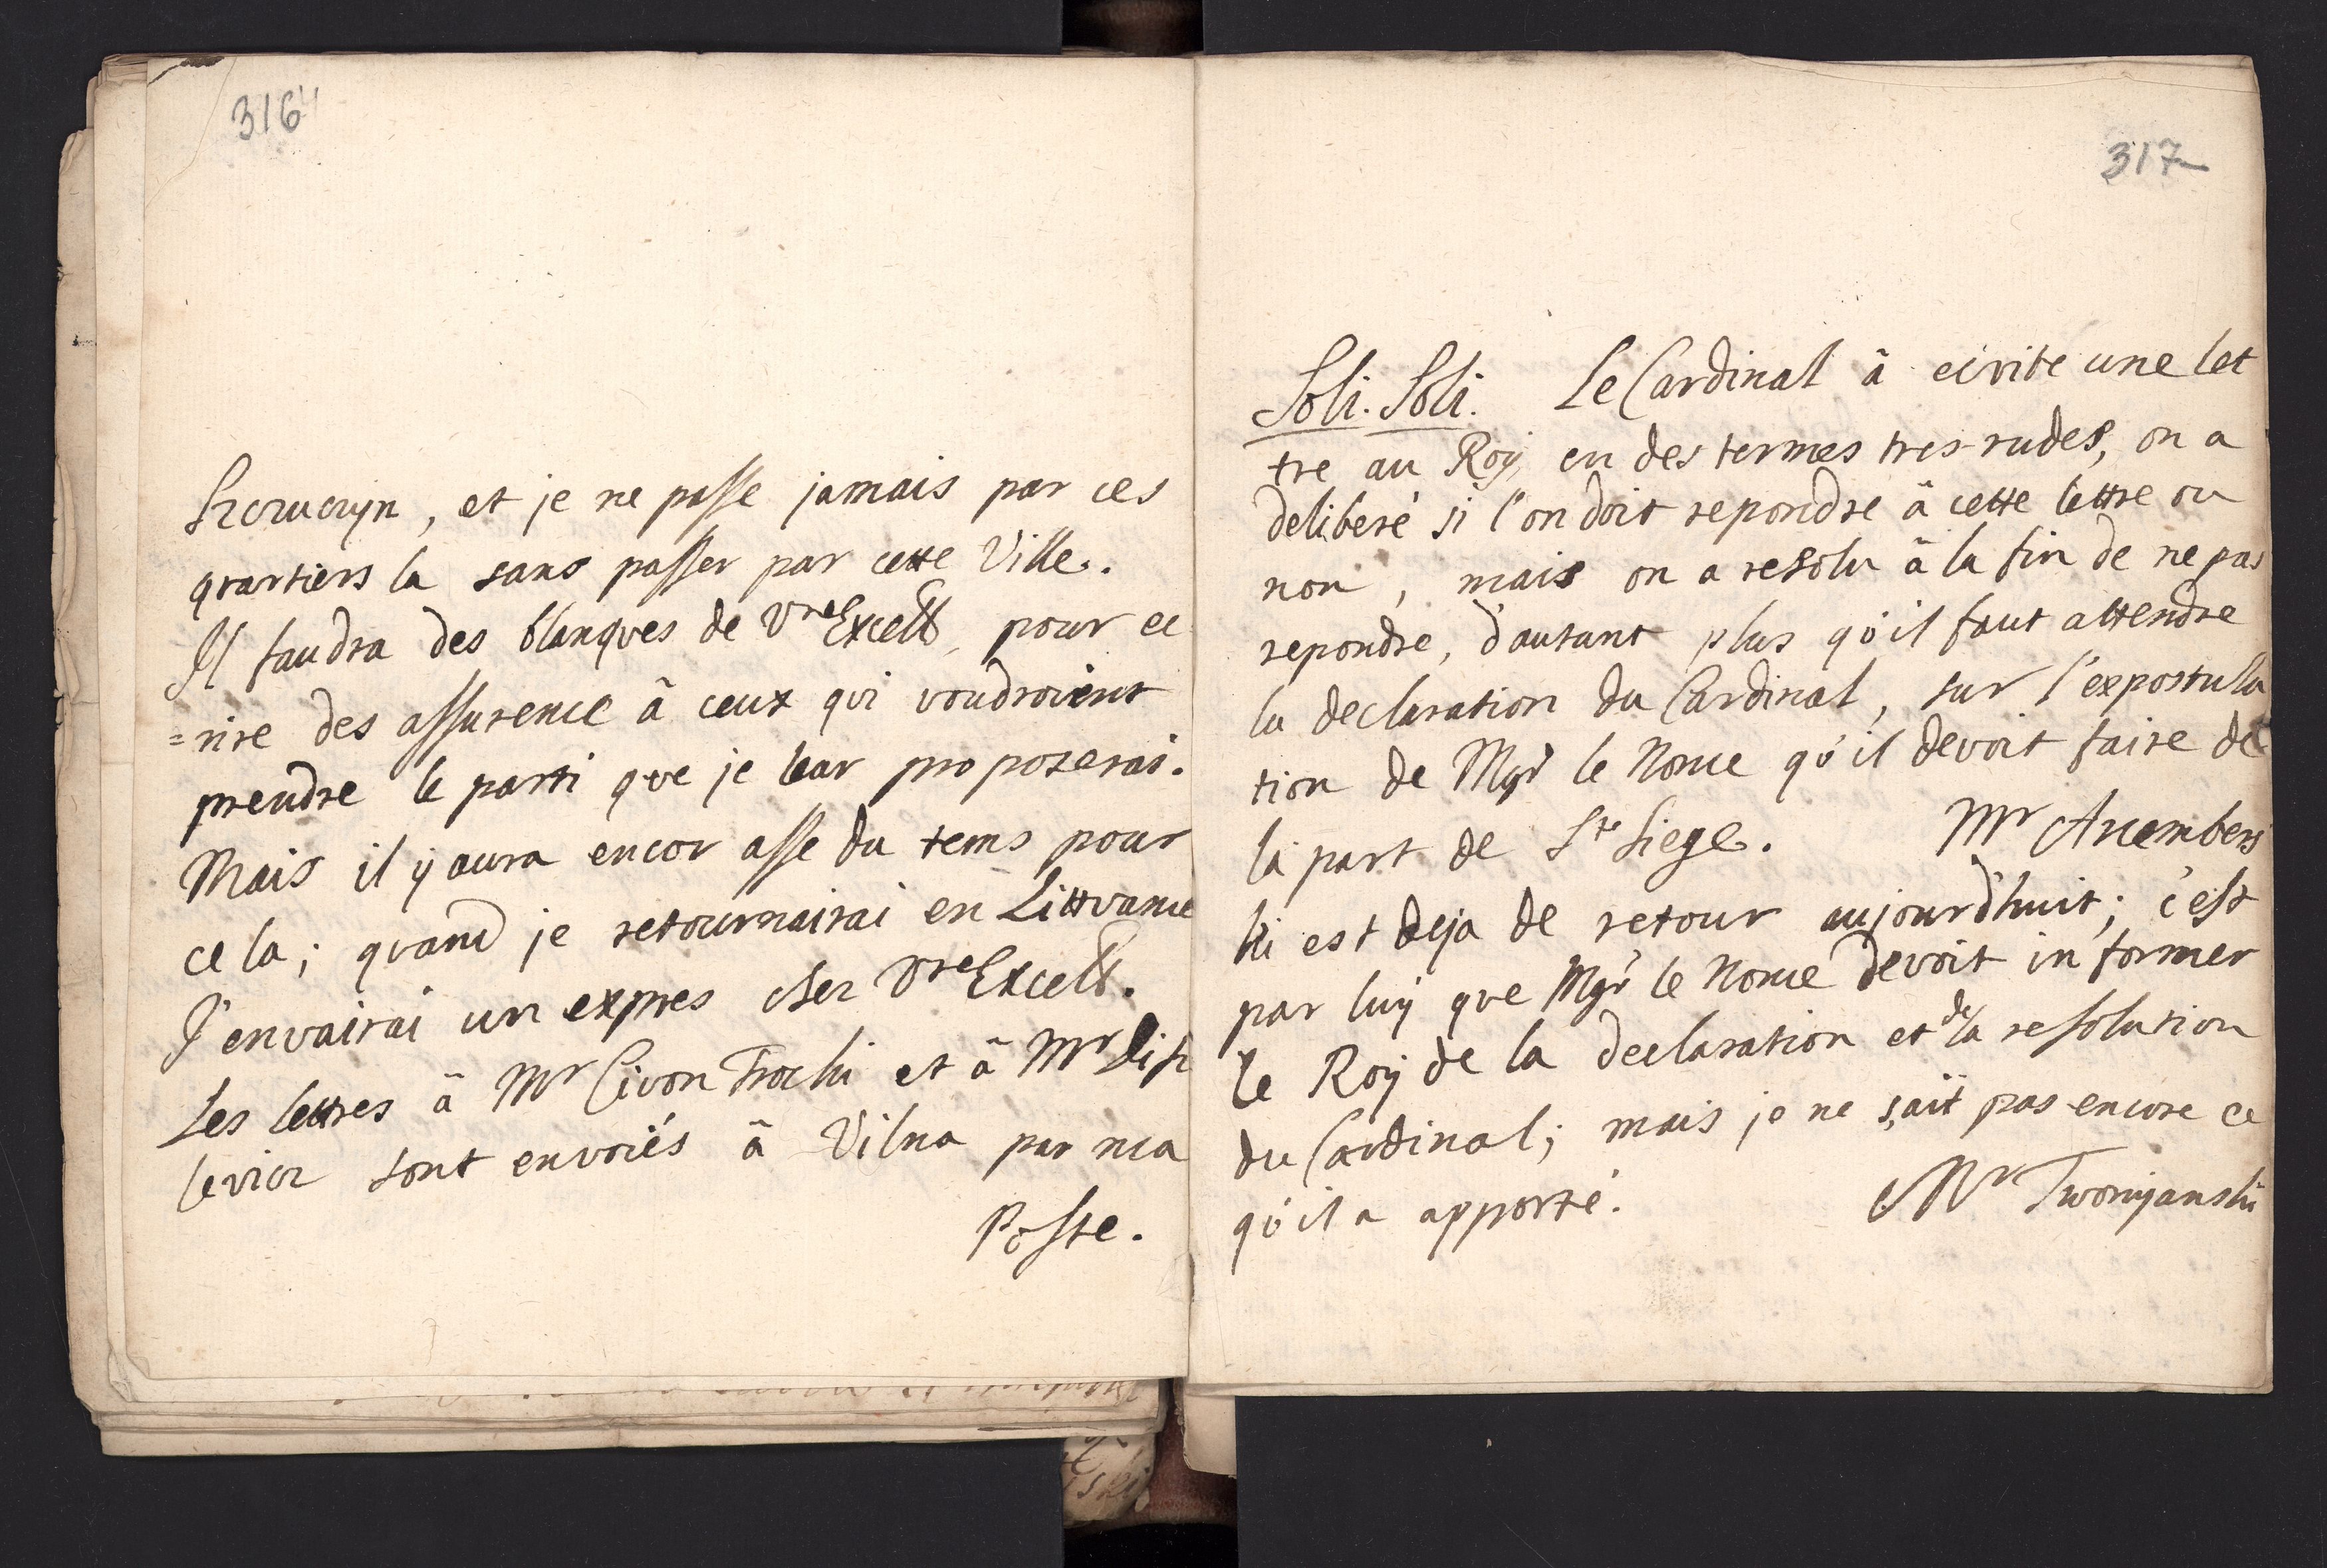 316
Szczuczyn, et je ne passe jamais par ces
quartiers la sans passer par cette Ville.
Il faudra des blanques de Vre Excell, pour ec
=rire des assurence â ceux qui voudroient
prendre le parti que je lear proposerai.
Mais il ÿ aura encor asse du tems pour
ce la; quand je retournairai en Littvanie
J'envairai un expres chez Vre Excell.
Les lettres â Mr Civon Trocki et â Mr Lis
levicz sont envoiés â Vilna par ma
Poste.
317
Soli. Soli. Le Cardinal â écrite une let
tre au Roÿ en des termes tres-rudes, on a
deliberé si l'on doit repondre â cette lettre ou
non, mais on a resolu â la fin de ne pas
repondre, d'autant plus qu'il faut attendre
la declaration du Cardinal, sur l'expostula
tion de Mgr le Nonce qu'il devoit faire de
la part de St Siege. Mr Ancembers
ki est deja de retour aujourd'huit; c'est
par luÿ que Mgr le Nonce devoit informer
le Roÿ de la declaration et de la resolution
du Cardinal; mais je ne sçait pas encore ce
qu'il a apporté. Mr Tworÿanski